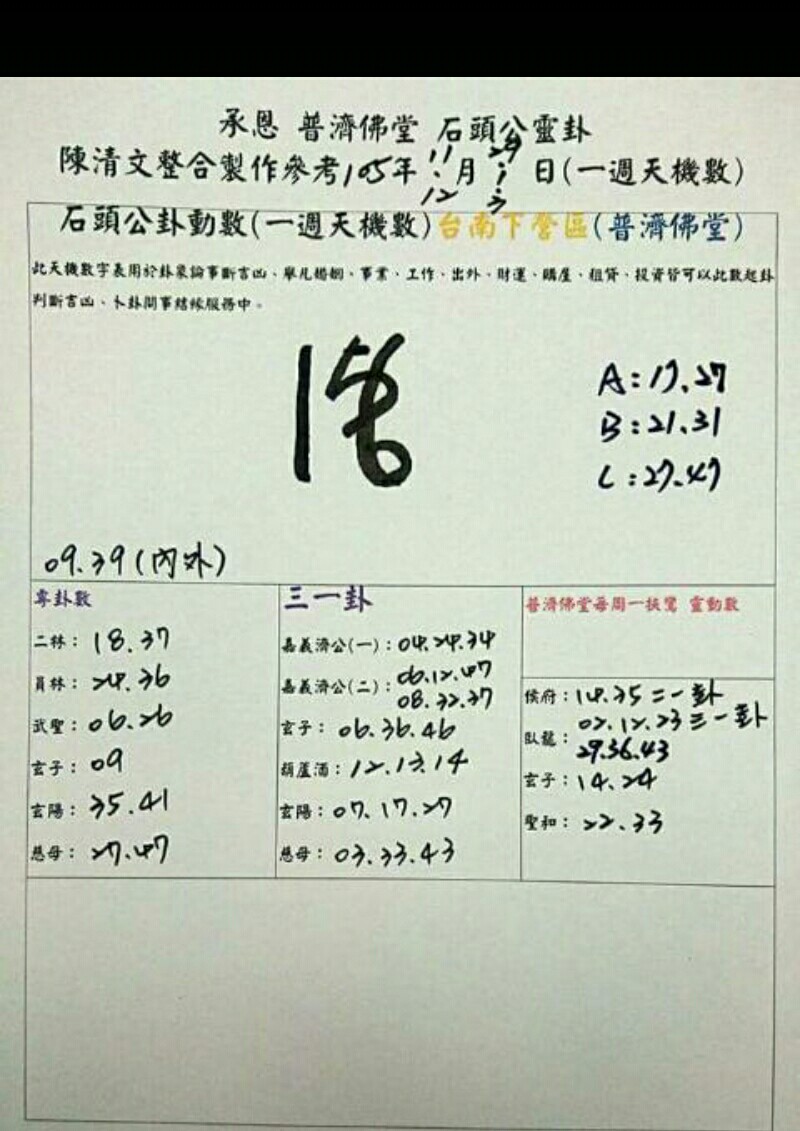 承恩 普濟佛堂 石頭公靈卦
陳清文整合製作參考105年11.12月29.3日(一週天機數)
石頭公卦動數(一週天機數)台南下營區(普濟佛堂)
此天機數字表用於卦象論事斷吉凶、舉凡婚姻、事業、工作、出外、財運、購屋、租貸、投資皆可以此數起卦
判斷吉凶、卜卦問事結緣服務中。
A:17.27
B:21.31
C:27.47
09.39(內外)
專卦數
二林:18.37
員林:24.36
武聖:06.26
玄子:09
玄陽:35.41
慈母:27.47
三一卦
嘉義濟公(一):04.24.34
嘉義濟公(二):06.12.47
08.32.37
玄子:06.36.46
葫蘆酒:12.13.14
玄陽:07.17.27
慈母:03.33.43
普濟佛堂每周一扶鸞 靈動數
侯府:14.35 二一卦
臥龍:02.12.23 三一卦
29.36.43
玄子:14.24
聖和:22.33